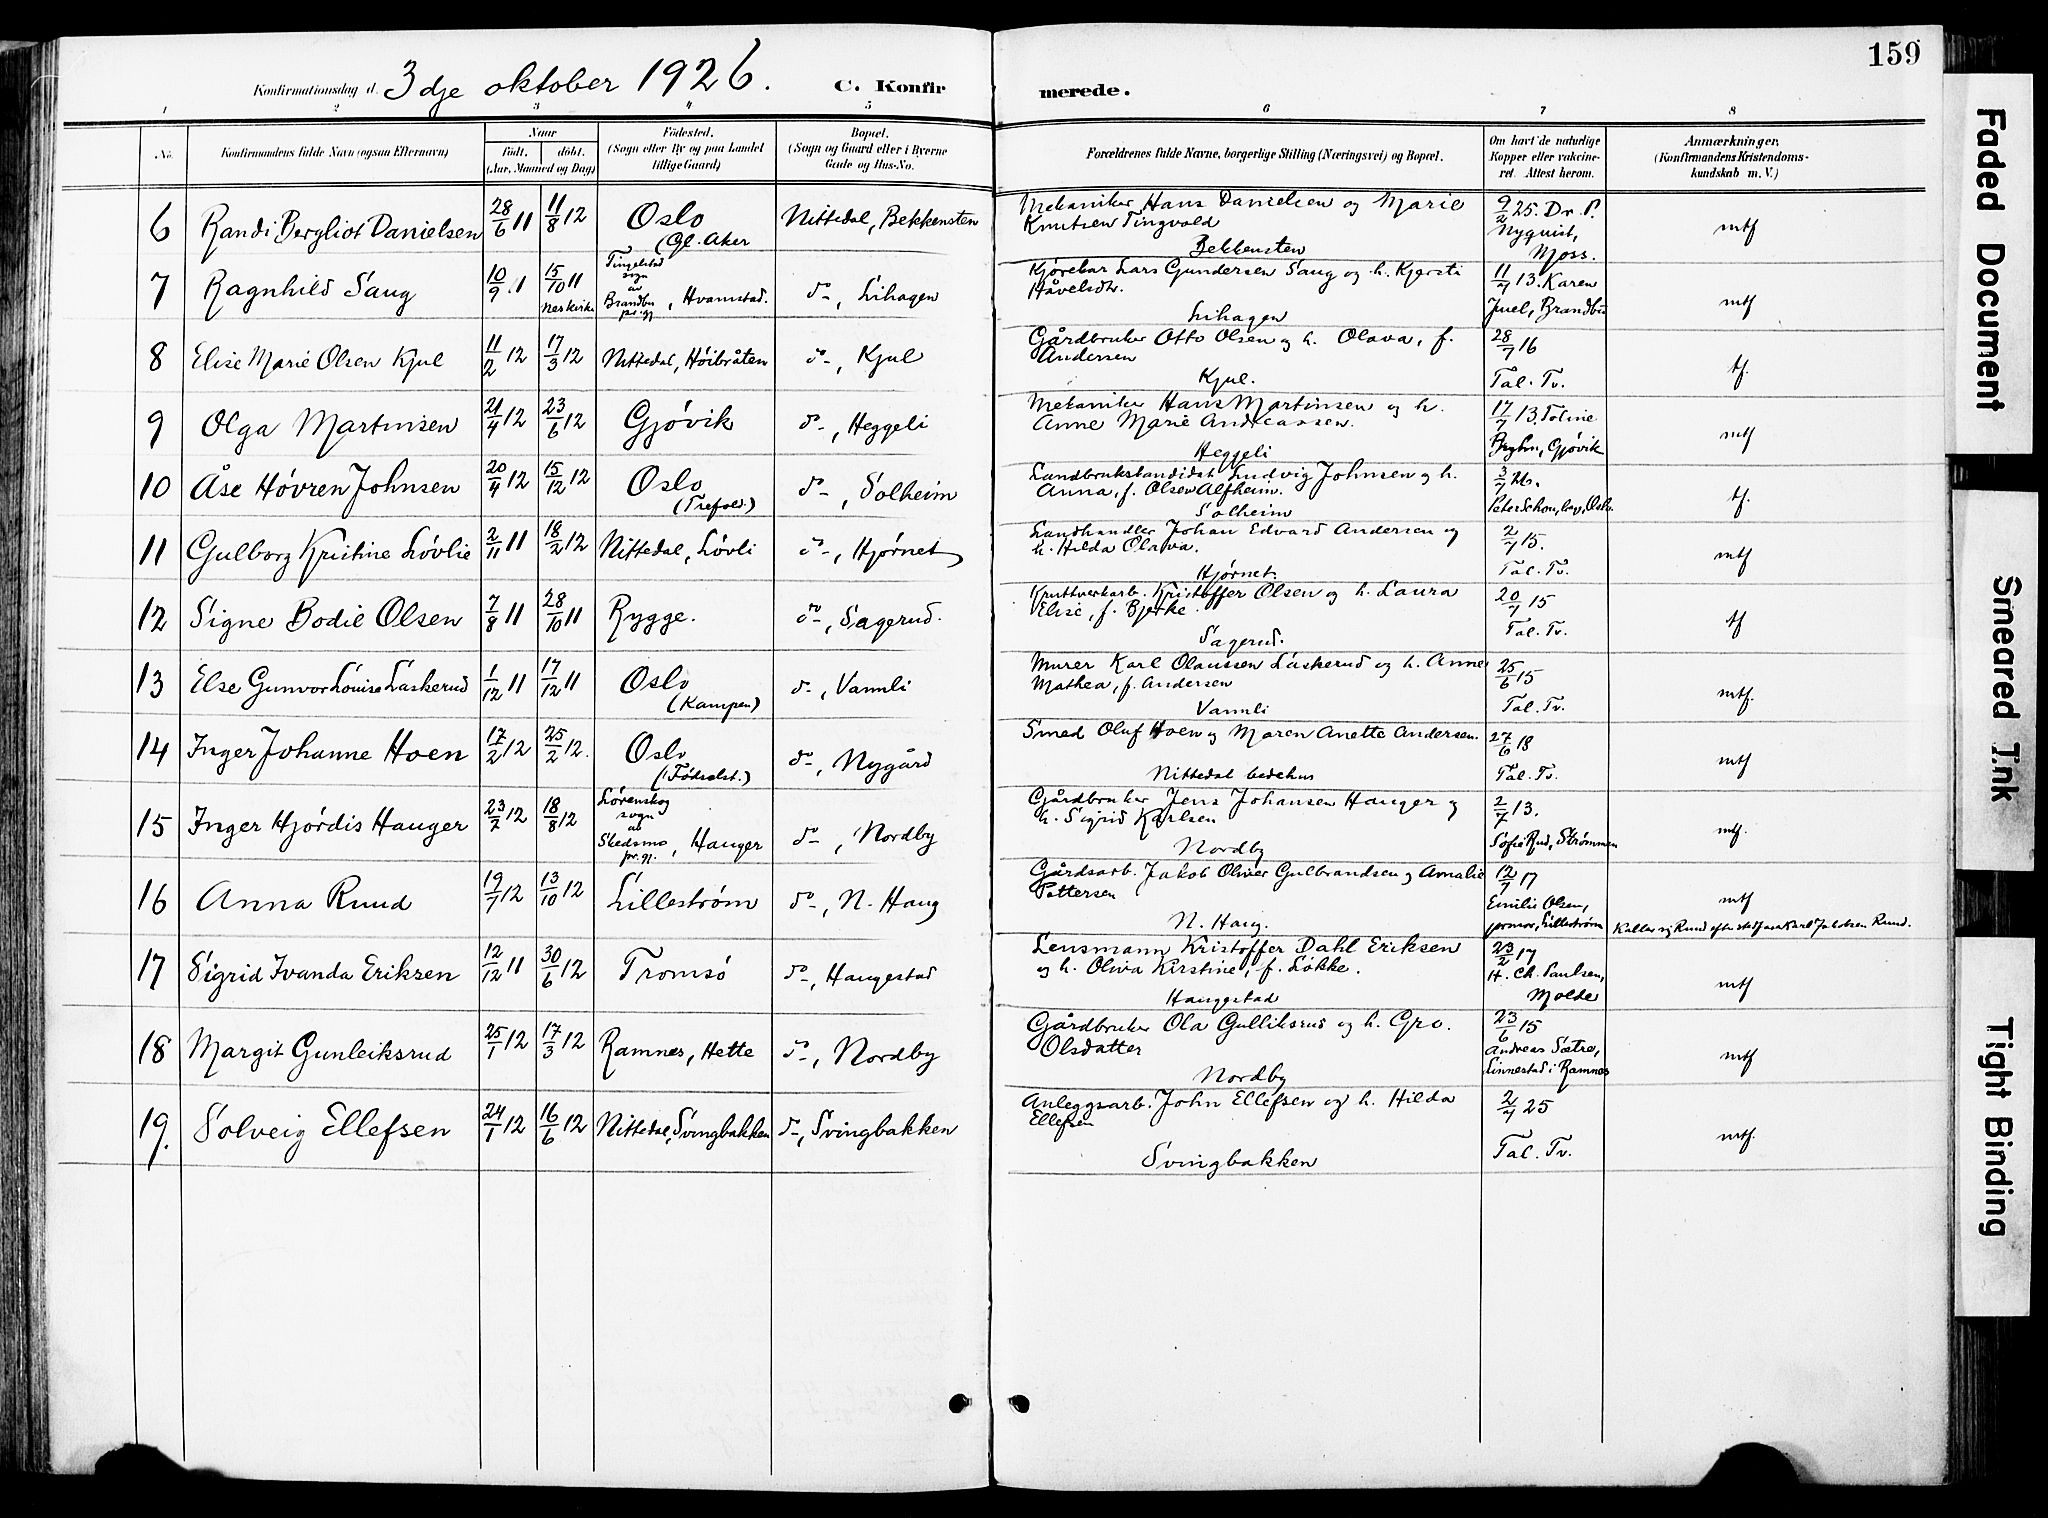 159
Konfirmationsdag d. 3dje oktober 1926. C. Konfirmerede.
1 2 3 4 5 6 7 8
No. Konfirmandens fulde Navn (ogsaa Efternavn) Naar født. døbt. (Aar, Maaned og Dag) Fødested. (Sogn eller By og paa Landet tillige Gaard) Bopæl. (Sogn og Gaard eller i Byerne Gade og Hus-No. Forældrenes fulde Navne, borgerlige Stilling (Næringsvei) og Bopæl. Om havt de naturlige Kopper eller vakcineret. Attest herom. Anmærkninger. (Konfirmandens Kristendomskundskab m. V.)
6 Randi Bergliot Danielsen 28/6 11 11/8 12 Oslo (Gl. Aker Nittedal, Bekkensten Mekaniker Hans Danielsen og Marie Knutsen Tingvold Bekkensten 9/2 25. Dr. P. Nyquist, Moss. mtf
7 Ragnhild Saug 10/9 11 15/10 11 Neskirke Tingelstad sogn av Brandbu pr.gj., Hvamstad. do, Lihagen Kjørekar Lars Gundersen Saug og h. Kjersti Håvelsdtr. Lihagen 11/7 13. Karen Juel, Brandbu mtf
8 Elise Marie Olsen Kjul 11/2 12 17/3 12 Nittedal, Høibråten do, Kjul Gårdbruker Otto Olsen og h. Olava, f. Andersen Kjul. 28/7 16 Tal. Tv. tf.
9 Olga Martinsen 21/4 12 23/6 12 Gjøvik do, Heggeli Mekaniker Hans Martinsen og h. Anne Marie Andreassen. Heggeli 17/7 13. Toline Gjøvik mtf
10 Åse Høvren Johnsen 20/4 12 15/12 12 Oslo (Trefold.) do, Solheim Landbrukskandidat Ludvig Johnsen og h. Anna, f. Olsen Alfheim. Solheim 3/7 Oslo. tf.
11 Gulborg Kristine Løvlie 2/11 11 18/2 12 Nittedal, Løvli do, Hjørnet Landhandler Johan Edvard Andersen og h. Hilda Olava. Hjørnet. 2/7 15. Tal. Tv. mtf
12 Signe Bodil Olsen 7/8 11 28/10 11 Rygge. do, Sagerud. Kruttverkarb. Kristoffer Olsen og h. Laura Elise, f. Bjerke. Sagerud. 20/7 15 Tal. Tv. tf
13 Else Gunvor Louise Låskerud 1/12 11 17/12 11 Oslo (Kampen) do, Vannli Murer Karl Olaussen Låskerud og h. Anne Mathea, f. Andersen Vannli 25/6 15 Tal. Tv. mtf.
14 Inger Johanne Hoen 17/2 12 25/2 12. Oslo (Fødselst.) do, Nygård Smed Oluf Hoen og Maren Anette Andersen. Nittedal bedehus 27/6 18 Tal. Tv. mtf
15 Inger Hjørdis Hauger 23/7 12 18/8 12 Lørenskog sogn av Skedsmo pr.gj., Hauger do, Nordby Gårdbruker Jens Johansen Hauger og h. Sigrid Karlsen Nordby 2/7 13. Sofie Rud, Strømmen mtf.
16 Anna Ruud 19/7 12 13/10 12 Lillestrøm do, N. Haug Gårdsarb. Jakob Oliver Gulbrandsen og Amalie Pettersen N. Haug. 12/7 17 Emilie Olsen, jormor, Lillestrøm mtf Kaller sig Ruud efter stedfaren Karl Jakobsen Ruud.
17 Sigrid Ivanda Eriksen 12/12 11 30/6 12 Tromsø do, Haugestad Lensmann Kristoffer Dahl Eriksen og h. Oliva Kirstine, f. Løkke. Haugestad 23/2 17 H. Ch. Paulsen, Molde mtf
18 Margit Gunleiksrud 25/1 12 17/3 12 Ramnes, Hette do, Nordby Gårdbruker Ola Gulliksrud og h. Gro Olsdatter Nordby 23/6 15 Andreas Sætre, Linnestad i Ramnes mtf
19. Solveig Ellefsen 24/1 12 16/6 12 Nittedal, Svingbakken do, Svingbakken Anleggsarb. John Ellefsen og h. Hilda Ellefsen Svingbakken 2/7 25 Tal. Tv. mtf.
Faded Document
Smeared Ink
Tight Binding